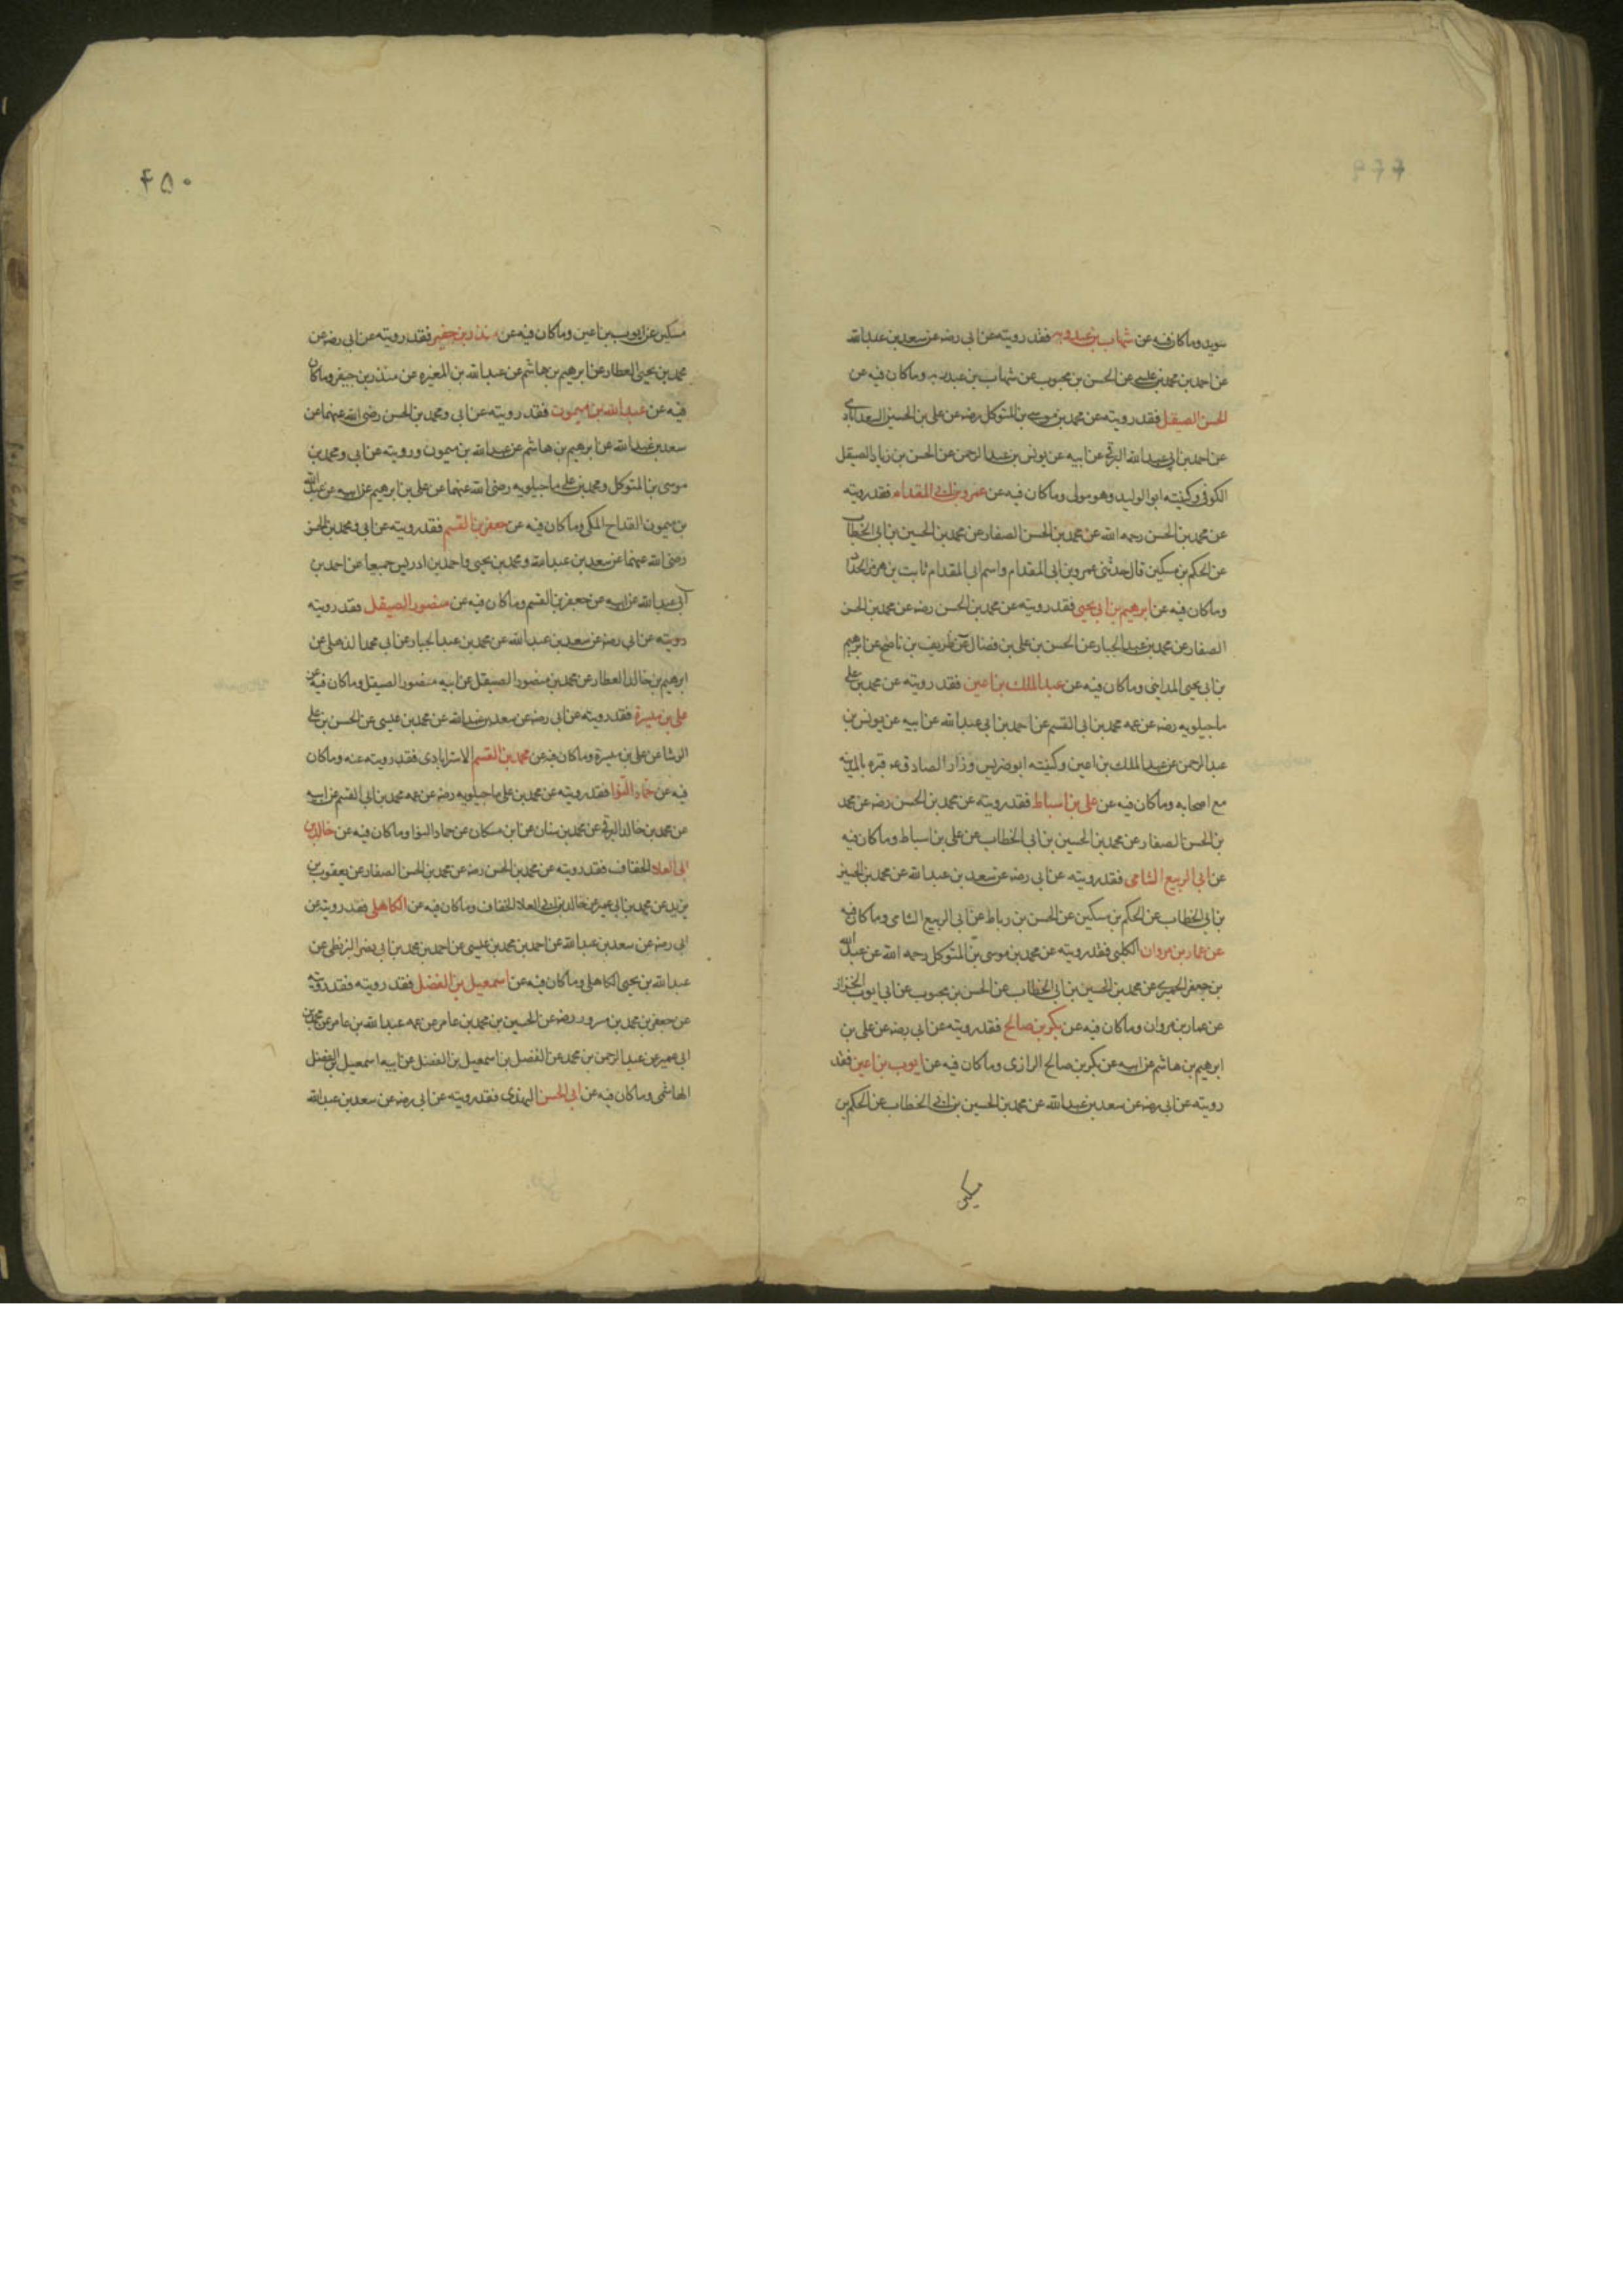 سويد وما كان فيه عن شهاب بن عبد ربه فقد رويته عن ابى رضه عن سعد بن عبد الله
عن احمد بن محمد بن عيسى عن الحسن بن محبوب عن شهاب بن عبد ربه وما كان فيه عن
الحسن الصيقل فقد رويته عن محمد بن موسى بن المتوكل رضه عن على بن الحسين السعدابادى
عن احمد بن ابى عبد الله البرقى عن ابيه عن يونس بن عبد الرحمن عن الحسن بن زياد الصيقل
الكوفى وكنيته ابو الوليد وهو مولى وما كان فيه عن عمرو بن ابى المقدام فقد رويته
عن محمد بن الحسن رحمه الله عن محمد بن الحسن الصفار عن محمد بن الحسين بن ابى الخطاب
عن الحكم بن مسكين قال حدثنى عمرو بن ابى المقدام واسم ابى المقدام ثابت بن هرمز الحداد
وما كان فيه عن ابرهيم بن ابى يحيى فقد رويته عن محمد بن الحسن رضه عن محمد بن الحسن
الصفار عن محمد بن عبد الجبار عن الحسن بن على بن فضال عن ظريف بن ناصح عن ابرهيم
بن ابى يحيى المداينى وما كان فيه عن عبد الملك بن اعين فقد رويته عن محمد بن على
ماجيلويه رضه عن عمه محمد بن ابى القسم عن احمد بن ابى عبد الله عن ابيه عن يونس بن
عبد الرحمن عن عبد الملك بن اعين وكنيته ابو ضريس وزار الصادق ع قبره بالمدينه
مع اصحابه وما كان فيه عن على بن اسباط فقد رويته عن محمد بن الحسن رضه عن محمد
بن الحسن الصفار عن محمد بن الحسين بن ابى الخطاب عن على بن اسباط وما كان فيه
عن ابى الربيع الشامى فقد رويته عن ابى رضه عن سعد بن عبد الله عن محمد بن الحسين
بن ابى الخطاب عن الحكم بن مسكين عن الحسن بن رباط عن ابى الربيع الشامى وما كان فيه
عن عمار بن مروان الكلبى فقد رويته عن محمد بن موسى بن المتوكل رحمه الله عن عبد الله
بن جعفر الحميرى عن محمد بن الحسين بن ابى الخطاب عن الحسن بن محبوب عن ابى ايوب الخزاز
عن عمار بن مروان وما كان فيه عن بكر بن صالح فقد رويته عن ابى رضه عن على بن
ابرهيم بن هاشم عن ابيه عن بكر بن صالح الرازى وما كان فيه عن ايوب بن اعين فقد
رويته عن ابى رضه عن سعد بن عبد الله عن محمد بن الحسين بن ابى الخطاب عن الحكم بن
۴۵۰
مسكين عن ايوب بن اعين وما كان فيه عن منذر بن جفير فقد رويته عن ابى رضه عن
محمد بن يحيى العطار عن ابرهيم بن هاشم عن عبد الله بن المغيره عن منذر بن جيفر وما كان
فيه عن عبد الله بن ميمون فقد رويته عن ابى ومحمد بن الحسن رضى الله عنهما عن
سعد بن عبد الله عن ابرهيم بن هاشم عن عبد الله بن ميمون ورويته عن ابى ومحمد بن
موسى بن المتوكل ومحمد بن على ماجيلويه رضى الله عنهما عن على بن ابرهيم عن ابيه عن عبد الله
بن ميمون القداح المكى وما كان فيه عن جعفر بن القسم فقد رويته عن ابى ومحمد بن الحسن
رضى الله عنهما عن سعد بن عبد الله ومحمد بن يحيى واحمد بن ادريس جميعا عن احمد بن
ابى عبد الله عن ابيه عن جعفر بن القسم وما كان فيه عن منصور الصيقل فقد رويته
رويته عن ابى رضه عن سعد بن عبد الله عن محمد بن عبد الجبار عن ابى محمد الذهلى عن
ابرهيم بن خالد العطار عن محمد بن منصور الصيقل عن ابيه منصور الصيقل وما كان فيه عن
على بن ميسرة فقد رويته عن ابى رضه عن سعد بن عبد الله عن محمد بن عيسى عن الحسن بن على
الوشا عن على بن ميسرة وما كان فيه عن محمد بن القسم الاسترابادى فقد رويته عنه وما كان
فيه عن حماد النوا فقد رويته عن محمد بن على ماجيلويه رضه عن عمه محمد بن ابى القسم عن ابيه
عن محمد بن خالد البرقى عن محمد بن سنان عن ابن مسكان عن حماد النوا وما كان فيه عن خالد بن
ابى العلا الخفاف فقد رويته عن محمد بن الحسن رضه عن محمد بن الحسن الصفار عن يعقوب بن
يزيد عن محمد بن ابى عمير عن خالد بن ابى العلا الخفاف وما كان فيه عن الكاهلى فقد رويته عن
ابى رضه عن سعد بن عبد الله عن احمد بن محمد بن عيسى عن احمد بن محمد بن ابى نصر البزنطى عن
عبد الله بن يحيى الكاهلى وما كان فيه عن اسمعيل بن الفضل فقد رويته فقد رويته
عن جعفر بن محمد بن مسرور رضه عن الحسين بن محمد بن عامر عن عمه عبد الله بن عامر عن محمد بن
ابى عمير عن عبد الرحمن بن محمد عن الفضل بن اسمعيل بن الفضل عن ابيه اسمعيل بن الفضل
الهاشمى وما كان فيه عن ابى الحسن النهدى فقد رويته عن ابى رضه عن سعد بن عبد الله